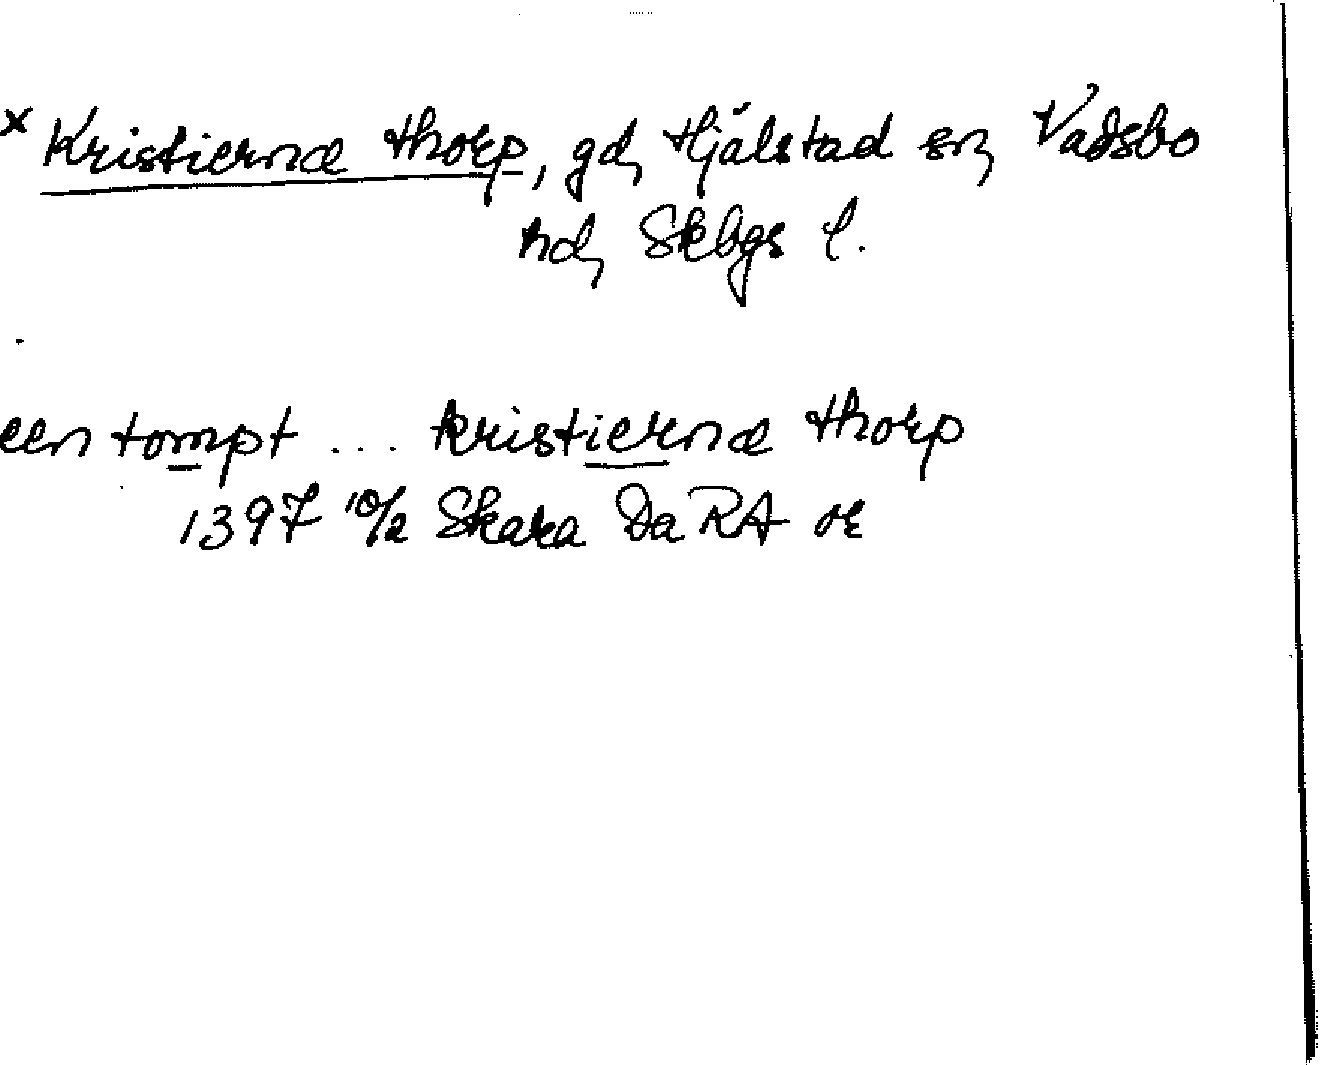 × Kristiernæ thorp, gd, Hjälstad sn, Vadsbo
hd, Skbgs l.
een tompt ... kristiernæ thorp
1397 10/2 Skara Da RA or